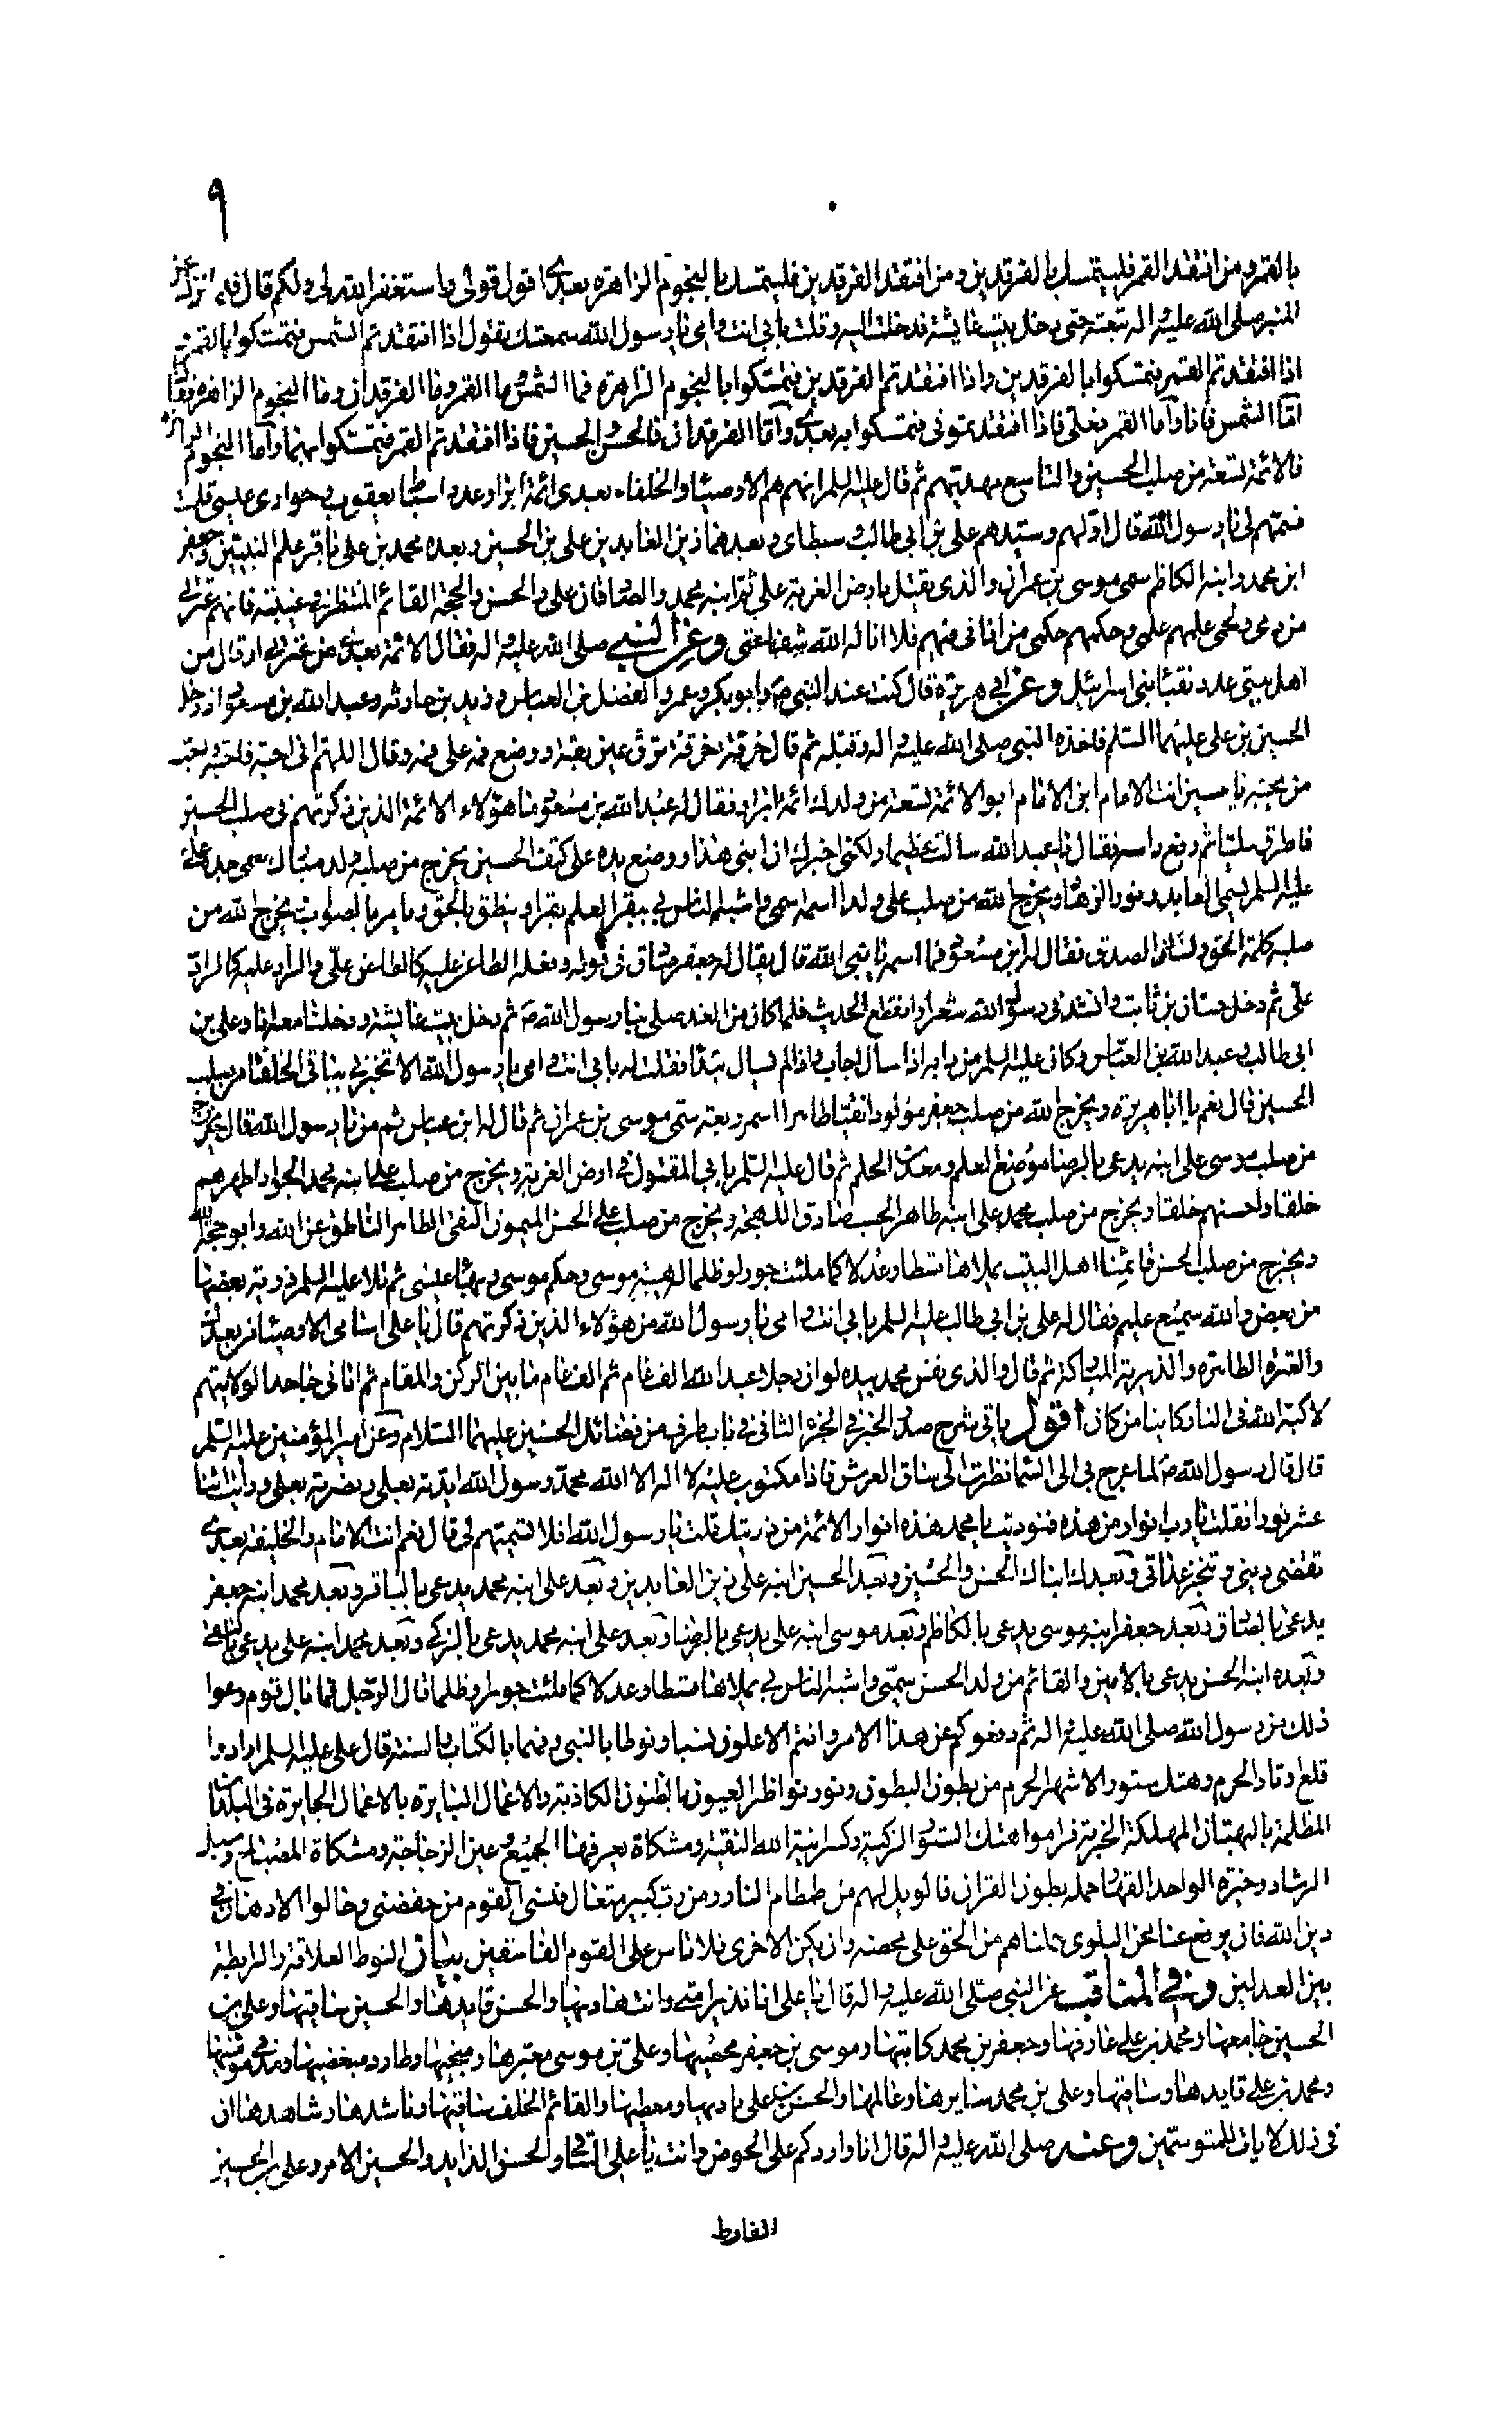 ٩
بالقمر ومن افتقد القمر فليتمسك بالفرقدين ومن افتقد الفرقدين فليتمسك بالنجوم الزاهرة بعدى اقول قولى واستغفر الله لى ولكم قال فلما نزل عن
المنبر صلى الله عليه واله تبعته حتى دخل بيت عايشة فدخلت اليه وقلت بابى انت وامى يا رسول الله سمعتك يقول اذا افتقدتم الشمس فتمسكوا بالقمر و
اذا افتقدتم القمر فتمسكوا بالفرقدين واذا افتقدتم الفرقدين فتمسكوا بالنجوم الزاهرة فما الشمس وما القمر وما الفرقدان وما النجوم الزاهرة فقال
امّا الشمس فانا وامّا القمر فعلىّ فاذا افتقدتمونى فتمسكوا به بعدى وامّا الفرقدان فالحسن والحسين فاذا افتقدتم القمر فتمسكوا بهما وامّا النجوم الزاهرة
فالائمة تسعة من صلب الحسين والتاسع مهديّهم ثم قال عليه السلم انهم هم الاوصياء والخلفاء بعدى ائمة ابرار عدد اسباط يعقوب وحوارى عيسى قلت
فسمّهم لى يا رسول الله قال اوّلهم وسيّدهم على بن ابى طالب وسبطاى وبعدهما زين العابدين على بن الحسين وبعده محمد بن على باقر علم النبيّين وجعفر
ابن محمد وابنه الكاظم سمى موسى بن عمران والذى يقتل بارض الغربة على ثم ابنه محمد والصادقان على والحسن والحجة القائم المنتظر فى غيبته فانهم عترتى
من دمى ولحمى علمهم علمى وحكمهم حكمى من اذانى فيهم فلا اناله الله شفاعتى وعن النبى صلى الله عليه واله فقال الائمة بعدى من عترتى او قال من
اهل بيتى عدد نقباء بنى اسرائيل وعن ابى هريرة قال كنت عند النبى ص وابو بكر وعمر والفضل بن العباس وزيد بن حارثه وعبد الله بن مسعود اذ دخل
الحسين بن على عليهما السلم فاخذه النبى صلى الله عليه واله وقبّله ثم قال حزقة حزقة ترقّ عين بقة ووضع فمه على فمه وقال اللهم انى احبه فاحبه واحبّ
من يحبه يا حسين انت الامام ابن الامام ابو الائمة تسعة من ولدك ائمة ابرار فقال له عبد الله بن مسعود ما هؤلاء الائمة الذين ذكرتهم فى صلب الحسين
فاطرق مليا ثم رفع راسه فقال يا عبد الله سالت عظيما ولكنى اخبرك ان ابنى هذا ووضع يده على كتف الحسين يخرج من صلبه ولد مبارك سمى جده على
عليه السلم يسمى العابد ونور الزهاد ويخرج الله من صلب على ولدا اسمه اسمى واشبه الناس بى يبقر العلم بقرا وينطق بالحق ويامر بالصواب ويخرج الله من
صلبه كلمة الحق ولسان الصدق فقال له ابن مسعود فما اسمه يا نبى الله قال يقال له جعفر صادق فى قوله وفعله الطاعن عليه كالطاعن علىّ والراد عليه كالراد
علىّ ثم دخل حسان بن ثابت وانشد فى رسول الله شعرا وانقطع الحديث فلما كان من الغد صلى بنا رسول الله ص ثم دخل بيت عايشة ودخلنا معه انا وعلى بن
ابى طالب وعبد الله بن العبّاس وكان عليه السلم من دابه اذا سال اجاب واذا لم يسال ابتدا فقلت له بابى انت وامى يا رسول الله الا تخبرنى بباقى الخلفاء من صلب
الحسين قال نعم يا ابا هريرة ويخرج الله من صلب جعفر مولودا نقيّا طاهرا اسمر ربعة سمّى موسى بن عمران ثم قال له ابن عباس ثم من يا رسول الله قال يخرج
من صلب موسى على ابنه يدعى بالرضا موضع العلم ومعدن الحلم ثم قال عليه السّلم بابى المقتول فى ارض الغربة ويخرج من صلب على ابنه محمد الجواد اطهرهم
خلقا واحسنهم خلقا ويخرج من صلب محمد على ابنه طاهر الجيب صادق اللهجة ويخرج من صلب على الحسن الميمون التقى الطاهر الناطق عن الله وابو حجة الله
ويخرج من صلب الحسن قائمنا اهل البيت يملاها قسطا وعدلا كما ملئت جورا وظلما له هيبة موسى وحكم موسى وبهاء عيسى ثم تلا عليه السلم ذرية بعضها
من بعض والله سميع عليم فقال له على بن ابى طالب عليه السلم بابى انت وامى يا رسول الله من هؤلاء الذين ذكرتهم قال يا على اسامى الاوصياء من بعدك
والعترة الطاهرة والذرية المباركة ثم قال والذى نفس محمد بيده لو ان رجلا عبد الله الف عام ثم الف عام ما بين الركن والمقام ثم اتانى جاحدا لولايتهم
لاكبّه الله فى النار كاينا من كان اقول ياتى شرح صدر الخبر فى الجزء الثانى فى باب طرف من فضائل الحسنين عليهما السّلام وعن امير المؤمنين عليه السّلم
قال قال رسول الله ص لما عرج بى الى السّما نظرت الى ساق العرش فاذا مكتوب عليه لا اله الا الله محمد رسول الله ايّدته بعلى ونصرته بعلى ورايت اثنا
عشر نورا فقلت يا رب انوار من هذه فنوديت يا محمد هذه انوار الائمة من ذريتك قلت يا رسول الله افلا تسمّيهم لى قال نعم انت الامام والخليفة بعدى
تقضى دينى وتنجز عداتى وبعدك ابناك الحسن والحسين وبعد الحسين ابنه على زين العابدين وبعد على ابنه محمد يدعى بالباقر وبعد محمد ابنه جعفر
يدعى بالصادق وبعد جعفر ابنه موسى يدعى بالكاظم وبعد موسى ابنه على يدعى بالرضا وبعد على ابنه محمد يدعى بالزكى وبعد محمد ابنه على يدعى بالنقى
وبعده ابنه الحسن يدعى بالامين والقائم من ولد الحسن سميّى واشبه الناس بى يملاها قسطا وعدلا كما ملئت جورا وظلما قال الرّجل فما بال قوم وعوا
ذلك من رسول الله صلى الله عليه واله ثم دفعوكم عن هذا الامر وانتم الاعلون نسبا ونوطا بالنبى وفهما بالكتاب والسنة قال على عليه السلم ارادوا
قلع اوتاد الحرم وهتك ستور الاشهر الحرم من بطون البطون ونور نواظر العيون بالظنون الكاذبة والاعمال البايرة بالاعمال الجايرة فى البلدان
المظلمة بالبهتان المهلكة الخربة فراموا هتك الستور الزكية وكسر انية الله النقية ومشكاة يعرفها الجميع وعين الزجاجة ومشكاة المصباح وسبل
الرشاد وخيرة الواحد القهار حملة بطون القران فالويل لهم من طمطام النار ومن رب كبير متعال فلبئس القوم من خفضنى وحالوا الادهان فى
دين الله فان يرفع عنا محن البلوى حملناهم من الحق على محضه وان يكن الاخرى فلا تاس على القوم الفاسقين بيان النوط العلاقة والرابطة
بين العدلين وفى المناقب عن النبى صلّى الله عليه واله قال يا على انا نذير امتى وانت هاديها والحسن قايدها والحسين سايقها وعلى بن
الحسين جامعها ومحمد بن على عارفها وجعفر بن محمد كاتبها وموسى بن جعفر محصيها وعلىّ بن موسى معبّرها ومنجيها وطارد مبغضيها ومدنى مؤمنيها
ومحمد بن على قايدها وسايقها وعلى بن محمد سايرها وعالمها والحسن بن على ناديها ومعطيها والقائم الخلف ساقيها وناشدها وشاهدها ان
فى ذلك لايات للمتوسّمين وعنه صلى الله عليه واله قال انا واردكم على الحوض وانت يا على الساقى والحسن الذايد والحسين الامر وعلى بن الحسين
الفارط